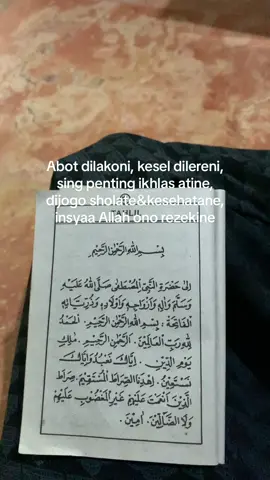 Abot dilakoni, kesel dilereni,
sing penting ikhlas atine,
dijogo sholate&kesehatane,
insyaa Allah ono rezekine
TAHLIL
بِسْمِ اللهِ الرَّحْمٰنِ الرَّحِيْمِ
اِلٰى حَضْرَةِ النَّبِيِّ الْمُصْطَفٰى صَلَّى اللهُ عَلَيْهِ
وَسَلَّمَ وَاٰلِهِ وَاَزْوَاجِهِ وَاَوْلَادِهِ وَذُرِّيَّاتِهِ
اَلْفَاتِحَةَ : بِسْمِ اللهِ الرَّحْمٰنِ الرَّحِيْمِ . اَلْحَمْدُ
لِلّٰهِ رَبِّ الْعَالَمِيْنَ . اَلرَّحْمٰنِ الرَّحِيْمِ . مٰلِكِ
يَوْمِ الدِّيْنِ . اِيَّاكَ نَعْبُدُ وَاِيَّاكَ
نَسْتَعِيْنُ . اِهْدِنَا الصِّرَاطَ الْمُسْتَقِيْمَ . صِرَاطَ
الَّذِيْنَ اَنْعَمْتَ عَلَيْهِمْ غَيْرِ الْمَغْضُوْبِ عَلَيْهِمْ
وَلَا الضَّالِّيْنَ . اٰمِيْنَ .